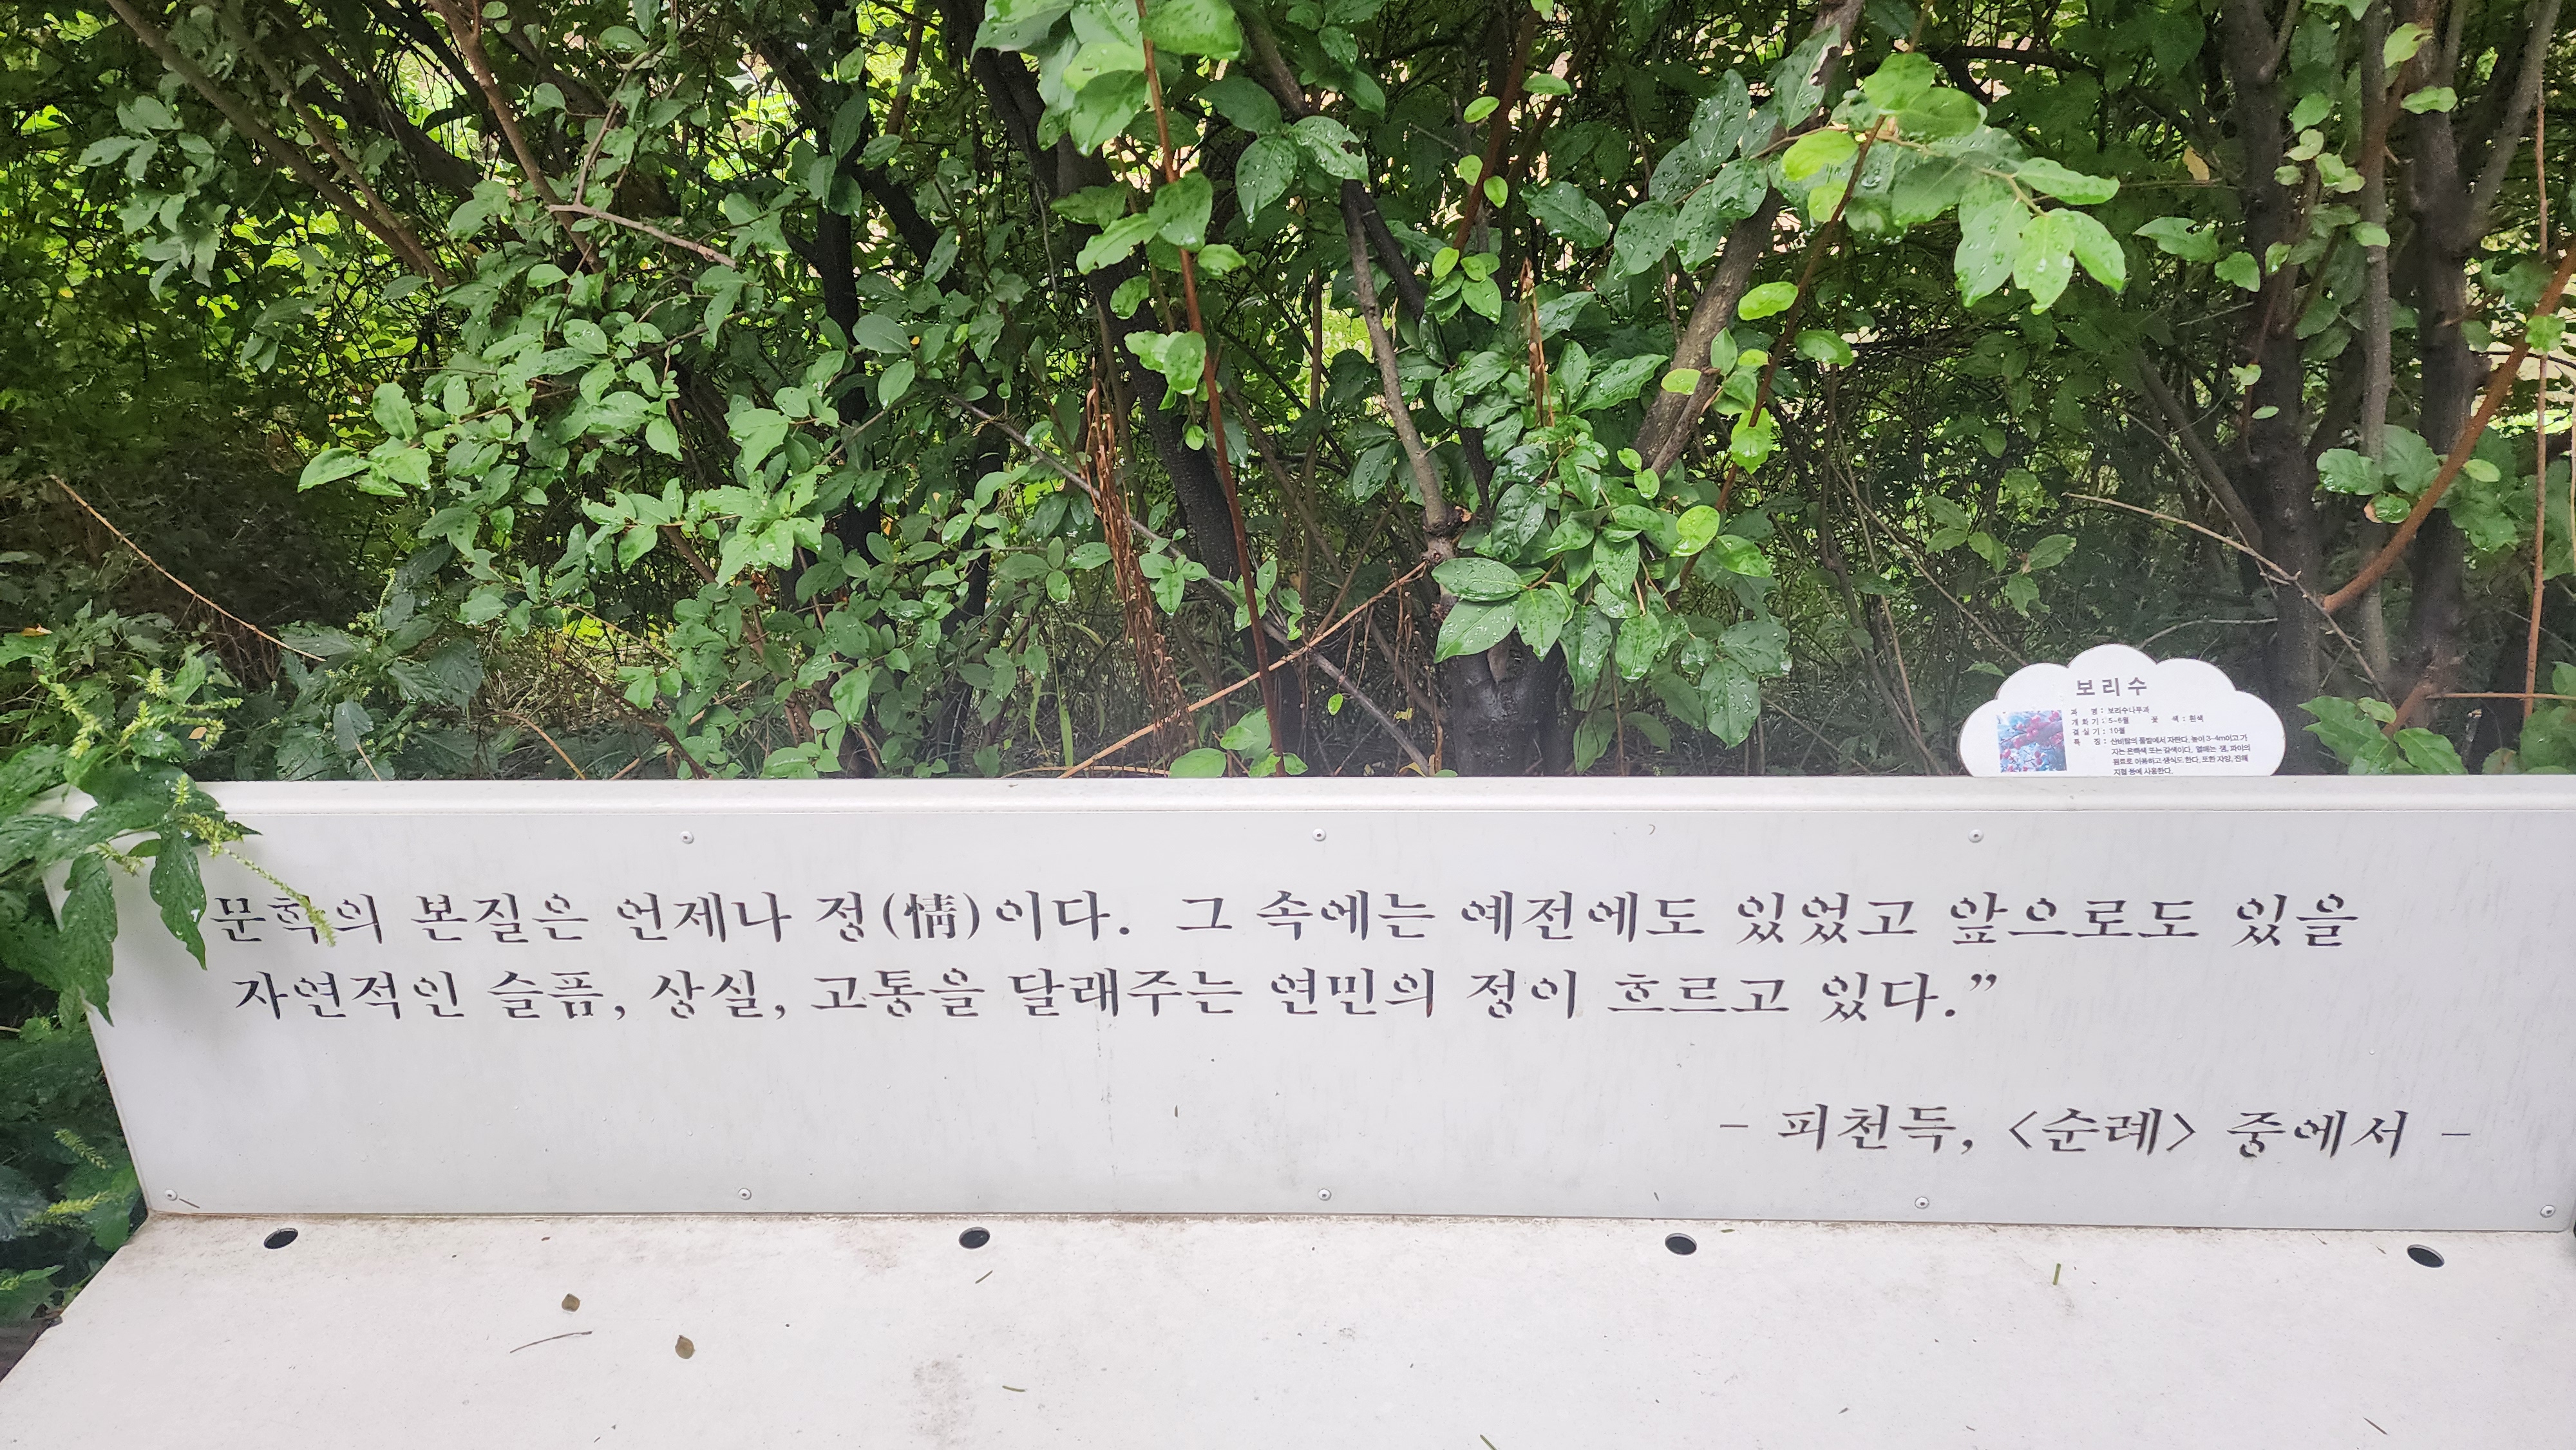 보리수
과 명 : 보리수나무과
개 화 기 : 5~6월 꽃 색 : 흰색
결 실 기 : 10월
특 징 : 산비탈의 풀밭에서 자란다. 높이 3~4m이고 가
지는 은백색 또는 갈색이다. 열매는 잼, 파이의
원료로 이용하고 생식도 한다. 또한 자양, 진해
지혈 등에 사용한다.
문학의 본질은 언제나 정(情)이다. 그 속에는 예전에도 있었고 앞으로도 있을
자연적인 슬픔, 상실, 고통을 달래주는 연민의 정이 흐르고 있다.”
– 피천득, <순례> 중에서 –